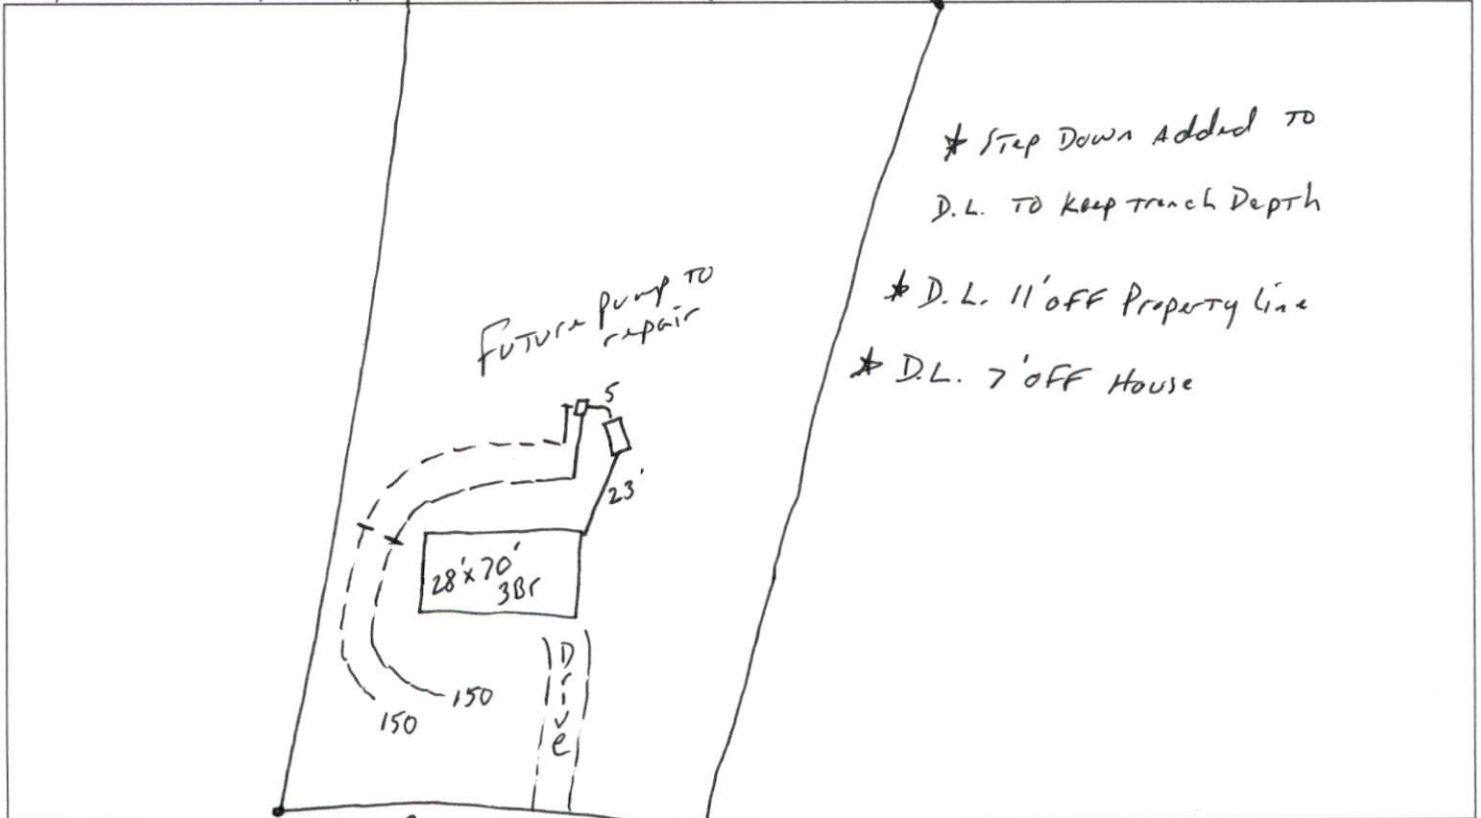 * Step Down Added To
D.L. To Keep trench Depth
* D.L. 11' off Property Line
* D.L. 7' off House
Future pump to
repair
5
23'
28'x70'
3Br
Drive
150
150